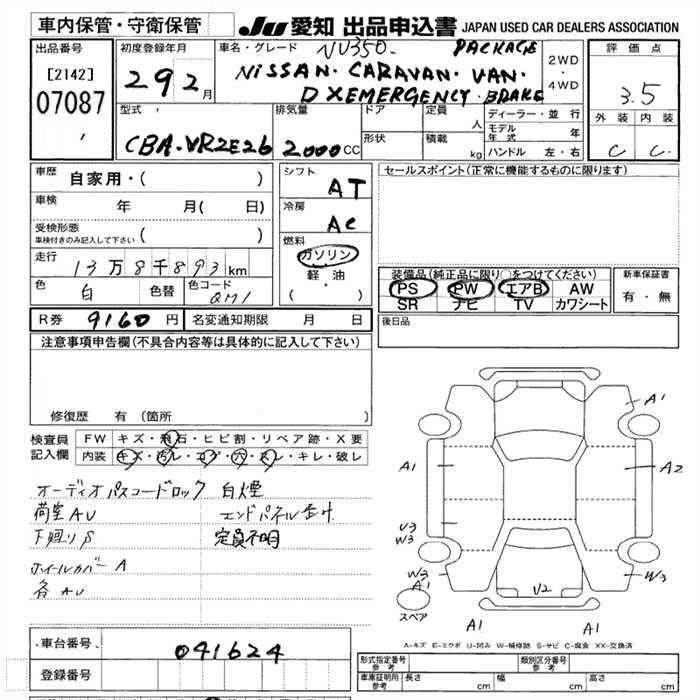 車内保管・守衛保管
JU 愛知 出品申込書 JAPAN USED CAR DEALERS ASSOCIATION
出品番号
[2142]
07087
初度登録年月
29 2月
車名・グレード
NV350 PACKAGE
NISSAN・CARAVAN・VAN・
DXEMERGENCY・BRAKE
2WD
・
4WD
評価点
3.5
外装 内装
C C
型式
CBA-VR2E26
排気量
2000CC
ドア
定員 人
形状
積載 kg
ディーラー・並行
モデル年式 年
ハンドル 左・右
車歴
自家用・( )
車検 年 月( 日)
受検形態
車検付きのみ記入して下さい ( )
走行
13万8千893km
色 白 色替
色コード QM1
シフト
AT
冷房
AC
燃料
ガソリン
軽・油
( ・ )
R券 9160円 名変通知期限 月 日
セールスポイント(正常に機能するものに限ります)
装備品(純正品に限り○をつけてください)
PS PW エアB AW
SR ナビ TV カワシート
新車保証書
有・無
後日品
注意事項申告欄(不具合内容等は具体的に記入して下さい)
修復歴 有(箇所 )
検査員記入欄
FW キズ・飛石・ヒビ割・リペア跡・X要
内装 キズ・汚レ・コゲ・穴・スレ・キレ・破レ
オーディオパスコードロック 白煙
荷室AU エンドパネル
下廻りS 定員不明
ホイールカバー A
各AU
車台番号 041624
登録番号
A1
A1
A2
U3
W3
W3
A1
スペア
U2
W3
A1
A1
A-キズ E-エクボ U-凹み W-補修跡 S-サビ C-腐食 XX-交換済
形式指定番号 参考
類別区分番号 参考
車庫証明用 参考 長さ cm 幅 cm 高さ cm